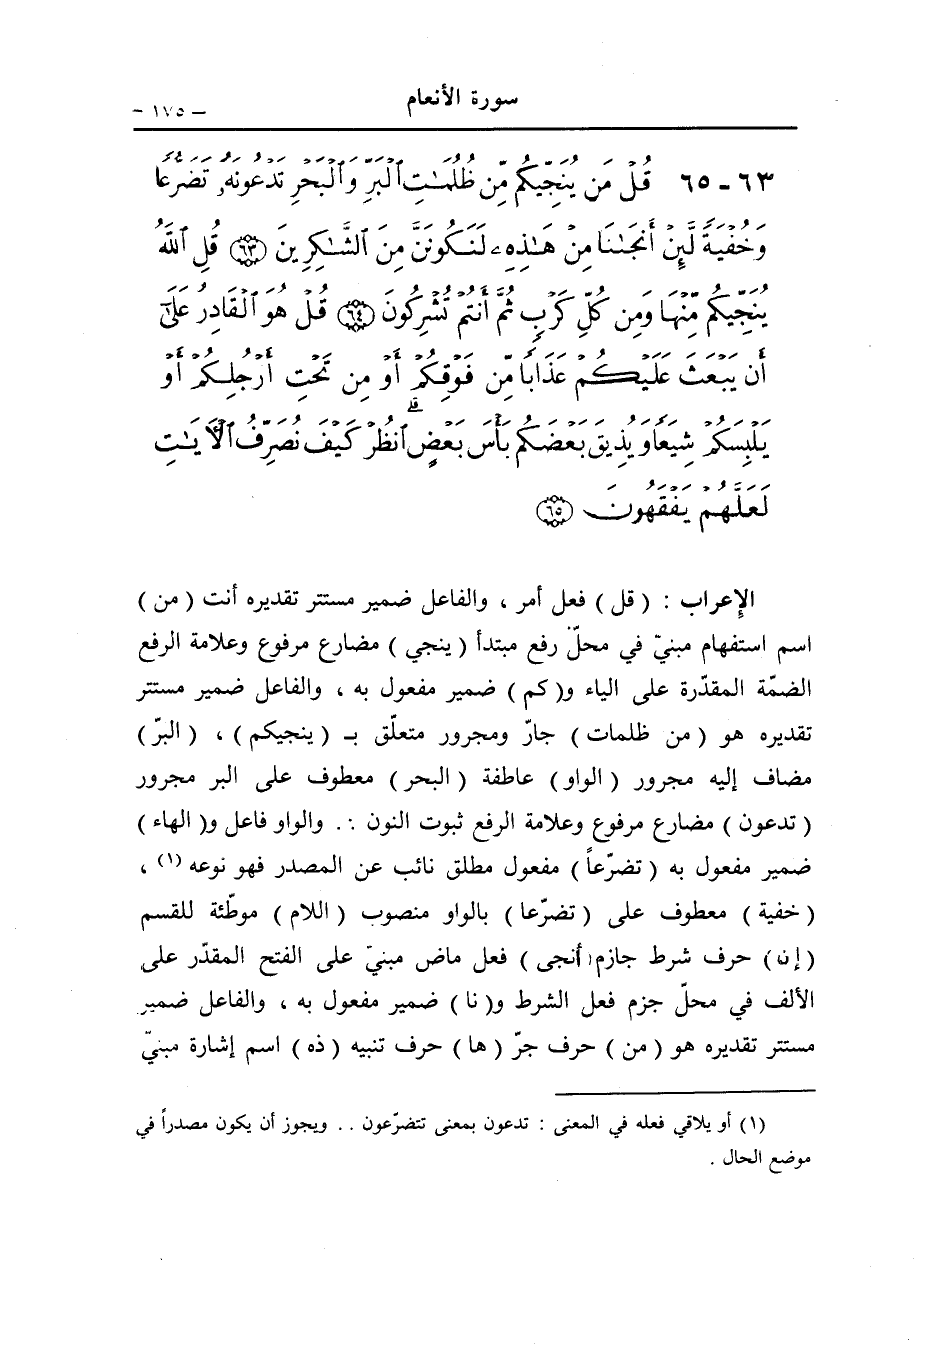 سورة الأنعام
– ١٧٥ –
٦٣ – ٦٥ قُلْ مَن يُنَجِّيكُم مِّن ظُلُمَٰتِ ٱلْبَرِّ وَٱلْبَحْرِ تَدْعُونَهُۥ تَضَرُّعًا
وَخُفْيَةً لَّئِنْ أَنجَىٰنَا مِنْ هَٰذِهِۦ لَنَكُونَنَّ مِنَ ٱلشَّٰكِرِينَ ٦٣ قُلِ ٱللَّهُ
يُنَجِّيكُم مِّنْهَا وَمِن كُلِّ كَرْبٍ ثُمَّ أَنتُمْ تُشْرِكُونَ ٦٤ قُلْ هُوَ ٱلْقَادِرُ عَلَىٰٓ
أَن يَبْعَثَ عَلَيْكُمْ عَذَابًا مِّن فَوْقِكُمْ أَوْ مِن تَحْتِ أَرْجُلِكُمْ أَوْ
يَلْبِسَكُمْ شِيَعًا وَيُذِيقَ بَعْضَكُم بَأْسَ بَعْضٍ ۗ ٱنظُرْ كَيْفَ نُصَرِّفُ ٱلْأٓيَٰتِ
لَعَلَّهُمْ يَفْقَهُونَ ٦٥
الإعراب : ( قل ) فعل أمر ، والفاعل ضمير مستتر تقديره أنت ( من )
اسم استفهام مبنيّ في محلّ رفع مبتدأ ( ينجي ) مضارع مرفوع وعلامة الرفع
الضمّة المقدّرة على الياء و( كم ) ضمير مفعول به ، والفاعل ضمير مستتر
تقديره هو ( من ظلمات ) جارّ ومجرور متعلّق بـ ( ينجيكم ) ، ( البرّ )
مضاف إليه مجرور ( الواو ) عاطفة ( البحر ) معطوف على البر مجرور
( تدعون ) مضارع مرفوع وعلامة الرفع ثبوت النون .. والواو فاعل و( الهاء )
ضمير مفعول به ( تضرّعاً ) مفعول مطلق نائب عن المصدر فهو نوعه (١) ،
( خفية ) معطوف على ( تضرّعا ) بالواو منصوب ( اللام ) موطّئة للقسم
( إن ) حرف شرط جازم ( أنجى ) فعل ماض مبنيّ على الفتح المقدّر على
الألف في محلّ جزم فعل الشرط و( نا ) ضمير مفعول به ، والفاعل ضمير
مستتر تقديره هو ( من ) حرف جرّ ( ها ) حرف تنبيه ( ذه ) اسم إشارة مبنيّ
(١) أو يلاقي فعله في المعنى : تدعون بمعنى تتضرّعون .. ويجوز أن يكون مصدراً في
موضع الحال .